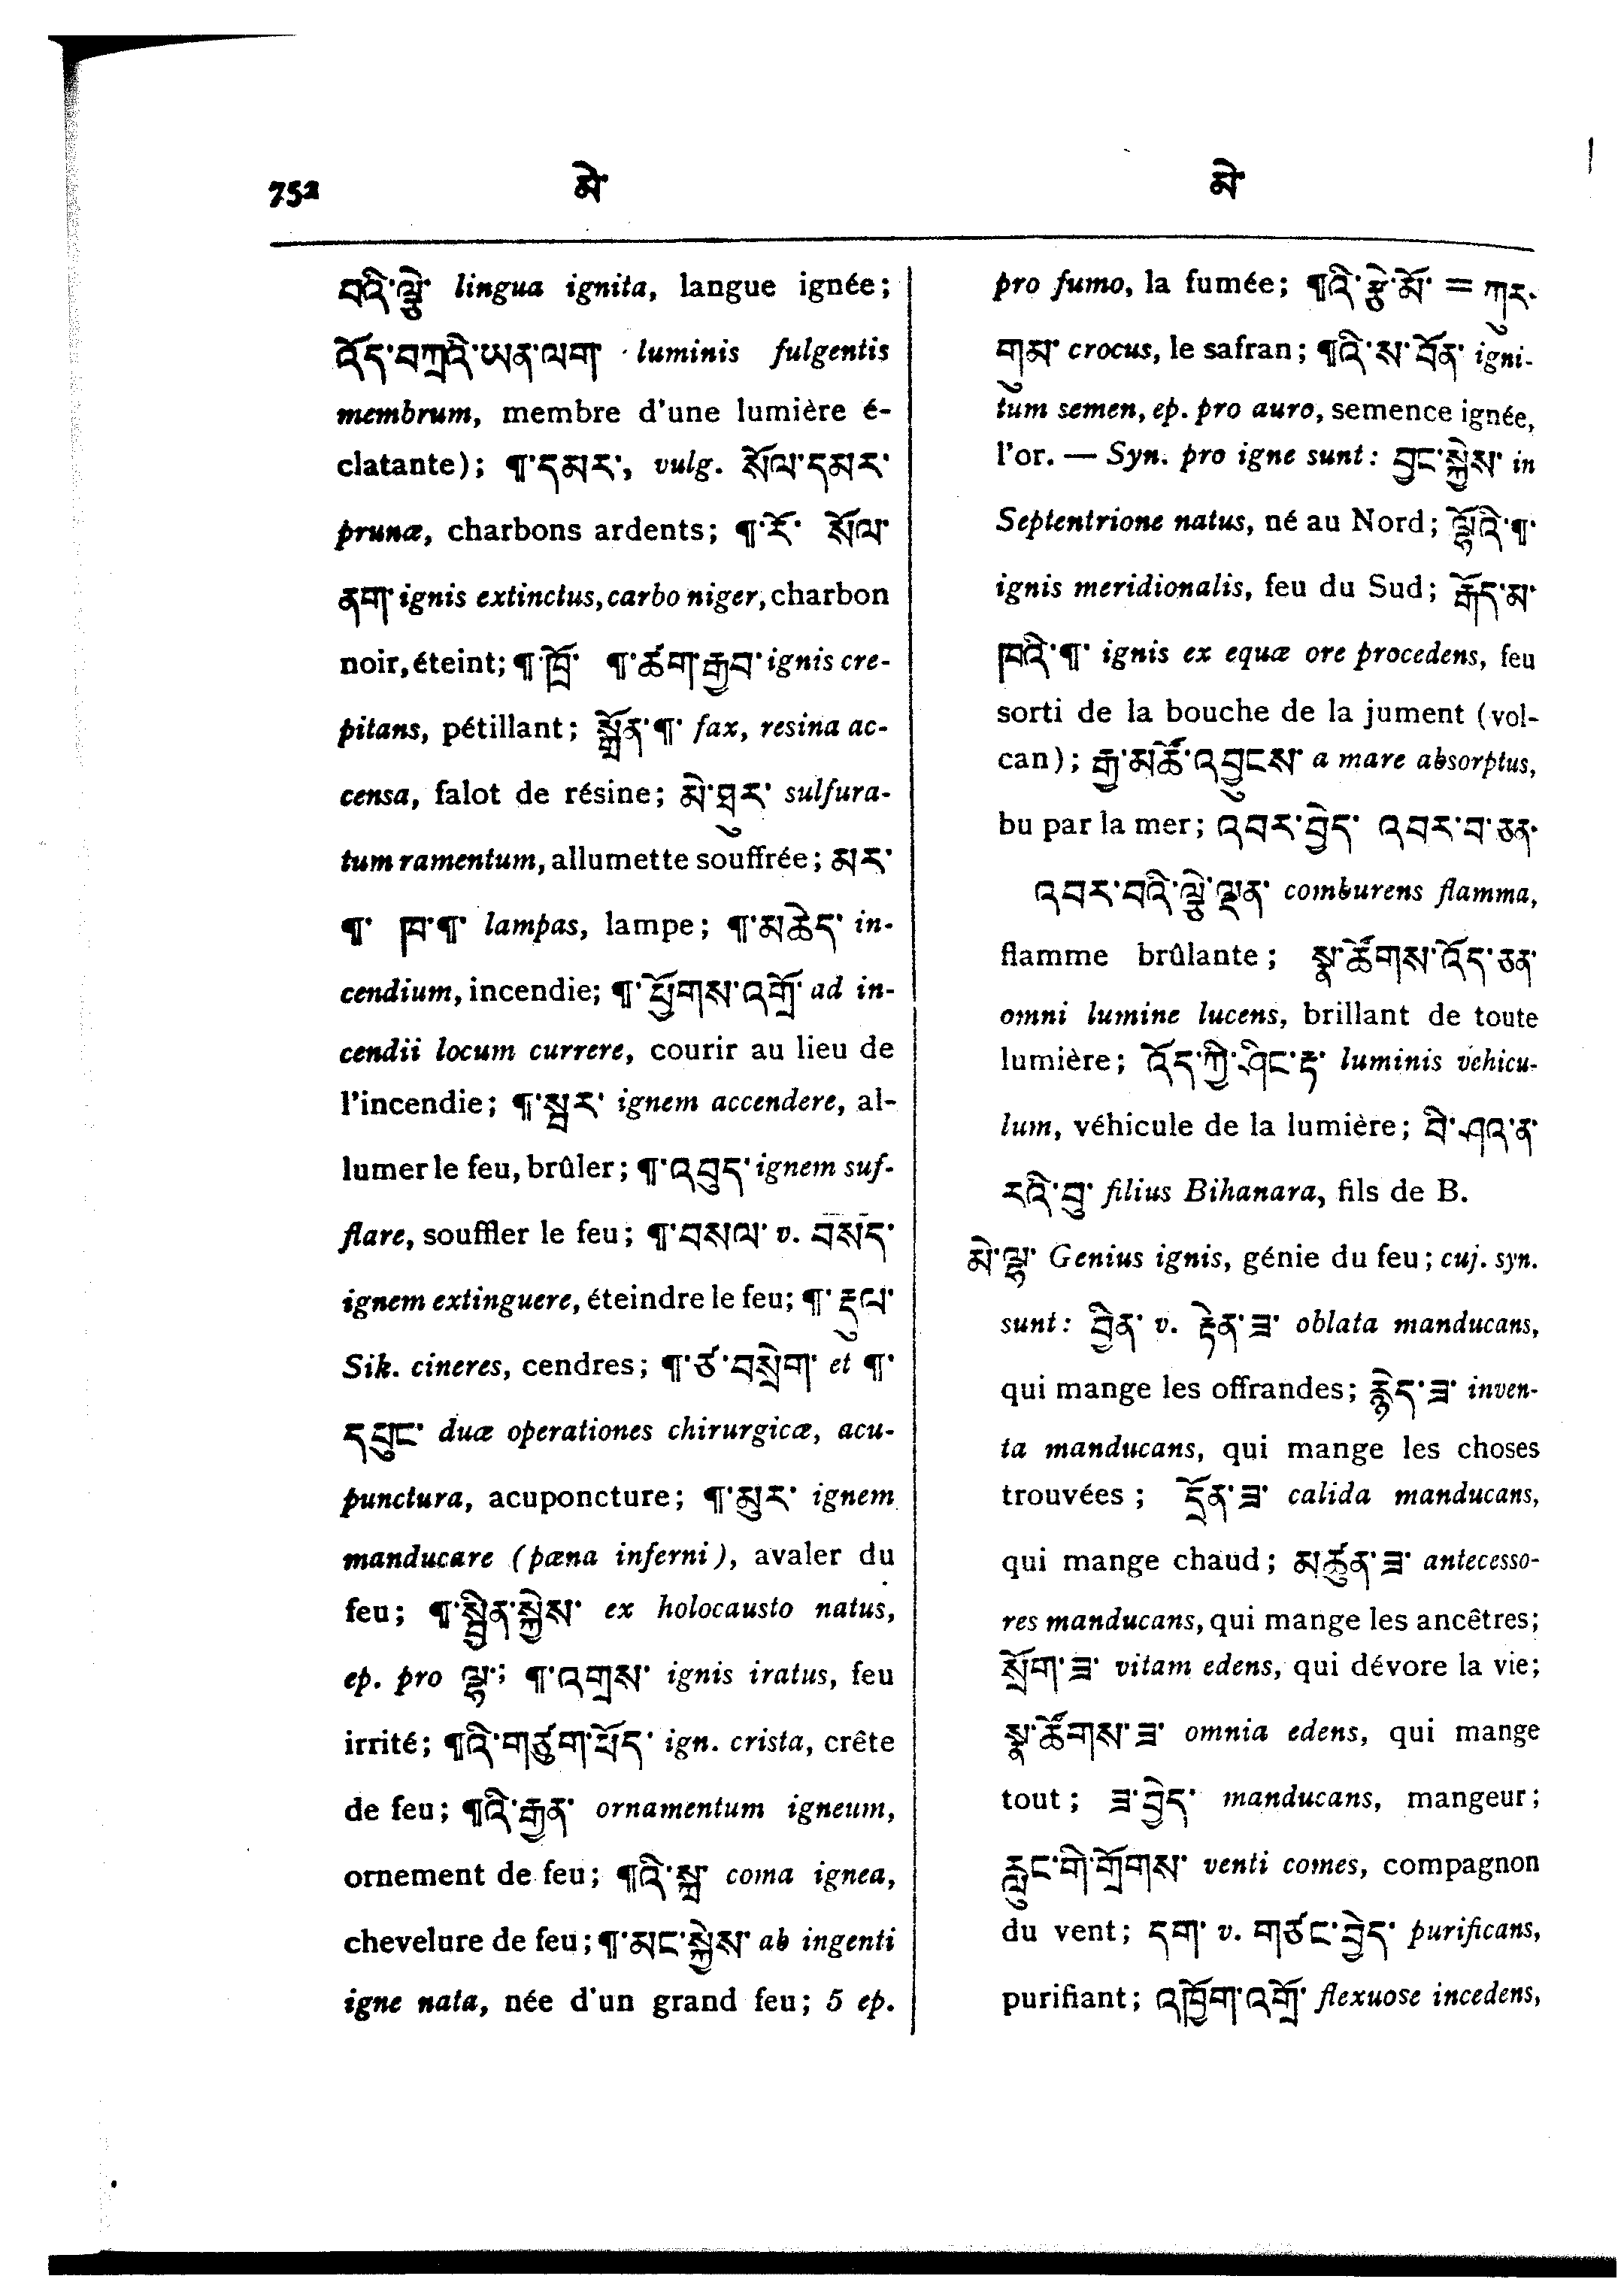 752 མེ་ མེ་
བའི་ལྕེ་ lingua ignita, langue ignée;
འོད་བཀྲའི་ཡན་ལག་ luminis fulgentis
membrum, membre d'une lumière é-
clatante); ¶་དམར་, vulg. སོལ་དམར་
prunæ, charbons ardents; ¶་རོ་ སོལ་
ནག་ ignis extinctus, carbo niger, charbon
noir, éteint; ¶་ཁྲོ་ ¶་ཚག་རྒྱབ་ ignis cre-
pitans, pétillant; སྒྲོན་¶་ fax, resina ac-
censa, falot de résine; མེ་ཐུར་ sulfura-
tum ramentum, allumette souffrée; མར་
¶་ ཁ་¶་ lampas, lampe; ¶་མཆེད་ in-
cendium, incendie; ¶་ཕྱོགས་འགྲོ་ ad in-
cendii locum currere, courir au lieu de
l'incendie; ¶་སྦར་ ignem accendere, al-
lumer le feu, brûler; ¶་འབུད་ ignem suf-
flare, souffler le feu; ¶་བསལ་ v. བསད་
ignem extinguere, éteindre le feu; ¶་རྡུལ་
Sik. cineres, cendres; ¶་ཙ་བསྲེག་ et ¶་
དབུང་ duæ operationes chirurgicæ, acu-
punctura, acuponcture; ¶་མུར་ ignem
manducare (pæna inferni), avaler du
feu; ¶་སྦྱིན་སྐྱེས་ ex holocausto natus,
ep. pro ལྷ་; ¶་འགྲས་ ignis iratus, feu
irrité; ¶འི་གཙུག་ཕོད་ ign. crista, crête
de feu; ¶འི་རྒྱན་ ornamentum igneum,
ornement de feu; ¶འི་སྐྲ་ coma ignea,
chevelure de feu; ¶་མང་སྐྱེས་ ab ingenti
igne nata, née d'un grand feu; 5 ep.
pro fumo, la fumée; ¶འི་རྩེ་མོ་ = ཀུར་
གུམ་ crocus, le safran; ¶འི་ས་བོན་ igni-
tum semen, ep. pro auro, semence ignée,
l'or. — Syn. pro igne sunt: བྱང་སྐྱེས་ in
Septentrione natus, né au Nord; ལྷོའི་¶་
ignis meridionalis, feu du Sud; རྒོད་མ་
ཁའི་¶་ ignis ex equæ ore procedens, feu
sorti de la bouche de la jument (vol-
can); རྒྱ་མཚོ་འབྱུངས་ a mare absorptus,
bu par la mer; འབར་བྱེད་ འབར་བ་ཅན་
འབར་བའི་ལྕེ་ལྡན་ comburens flamma,
flamme brûlante; སྣ་ཚོགས་འོད་ཅན་
omni lumine lucens, brillant de toute
lumière; འོད་ཀྱི་ཤིང་རྟ་ luminis vehicu-
lum, véhicule de la lumière; བི་ཤའ་ན་
རའི་བུ་ filius Bihanara, fils de B.
མེ་ལྷ་ Genius ignis, génie du feu; cuj. syn.
sunt: བྱིན་ v. རྟེན་ཟ་ oblata manducans,
qui mange les offrandes; རྙེད་ཟ་ inven-
ta manducans, qui mange les choses
trouvées; དྲོན་ཟ་ calida manducans,
qui mange chaud; མཚུན་ཟ་ antecesso-
res manducans, qui mange les ancêtres;
སྲོག་ཟ་ vitam edens, qui dévore la vie;
སྣ་ཚོགས་ཟ་ omnia edens, qui mange
tout; ཟ་བྱེད་ manducans, mangeur;
རླུང་གི་གྲོགས་ venti comes, compagnon
du vent; དག་ v. གཙང་བྱེད་ purificans,
purifiant; འཁྱོག་འགྲོ་ flexuose incedens,